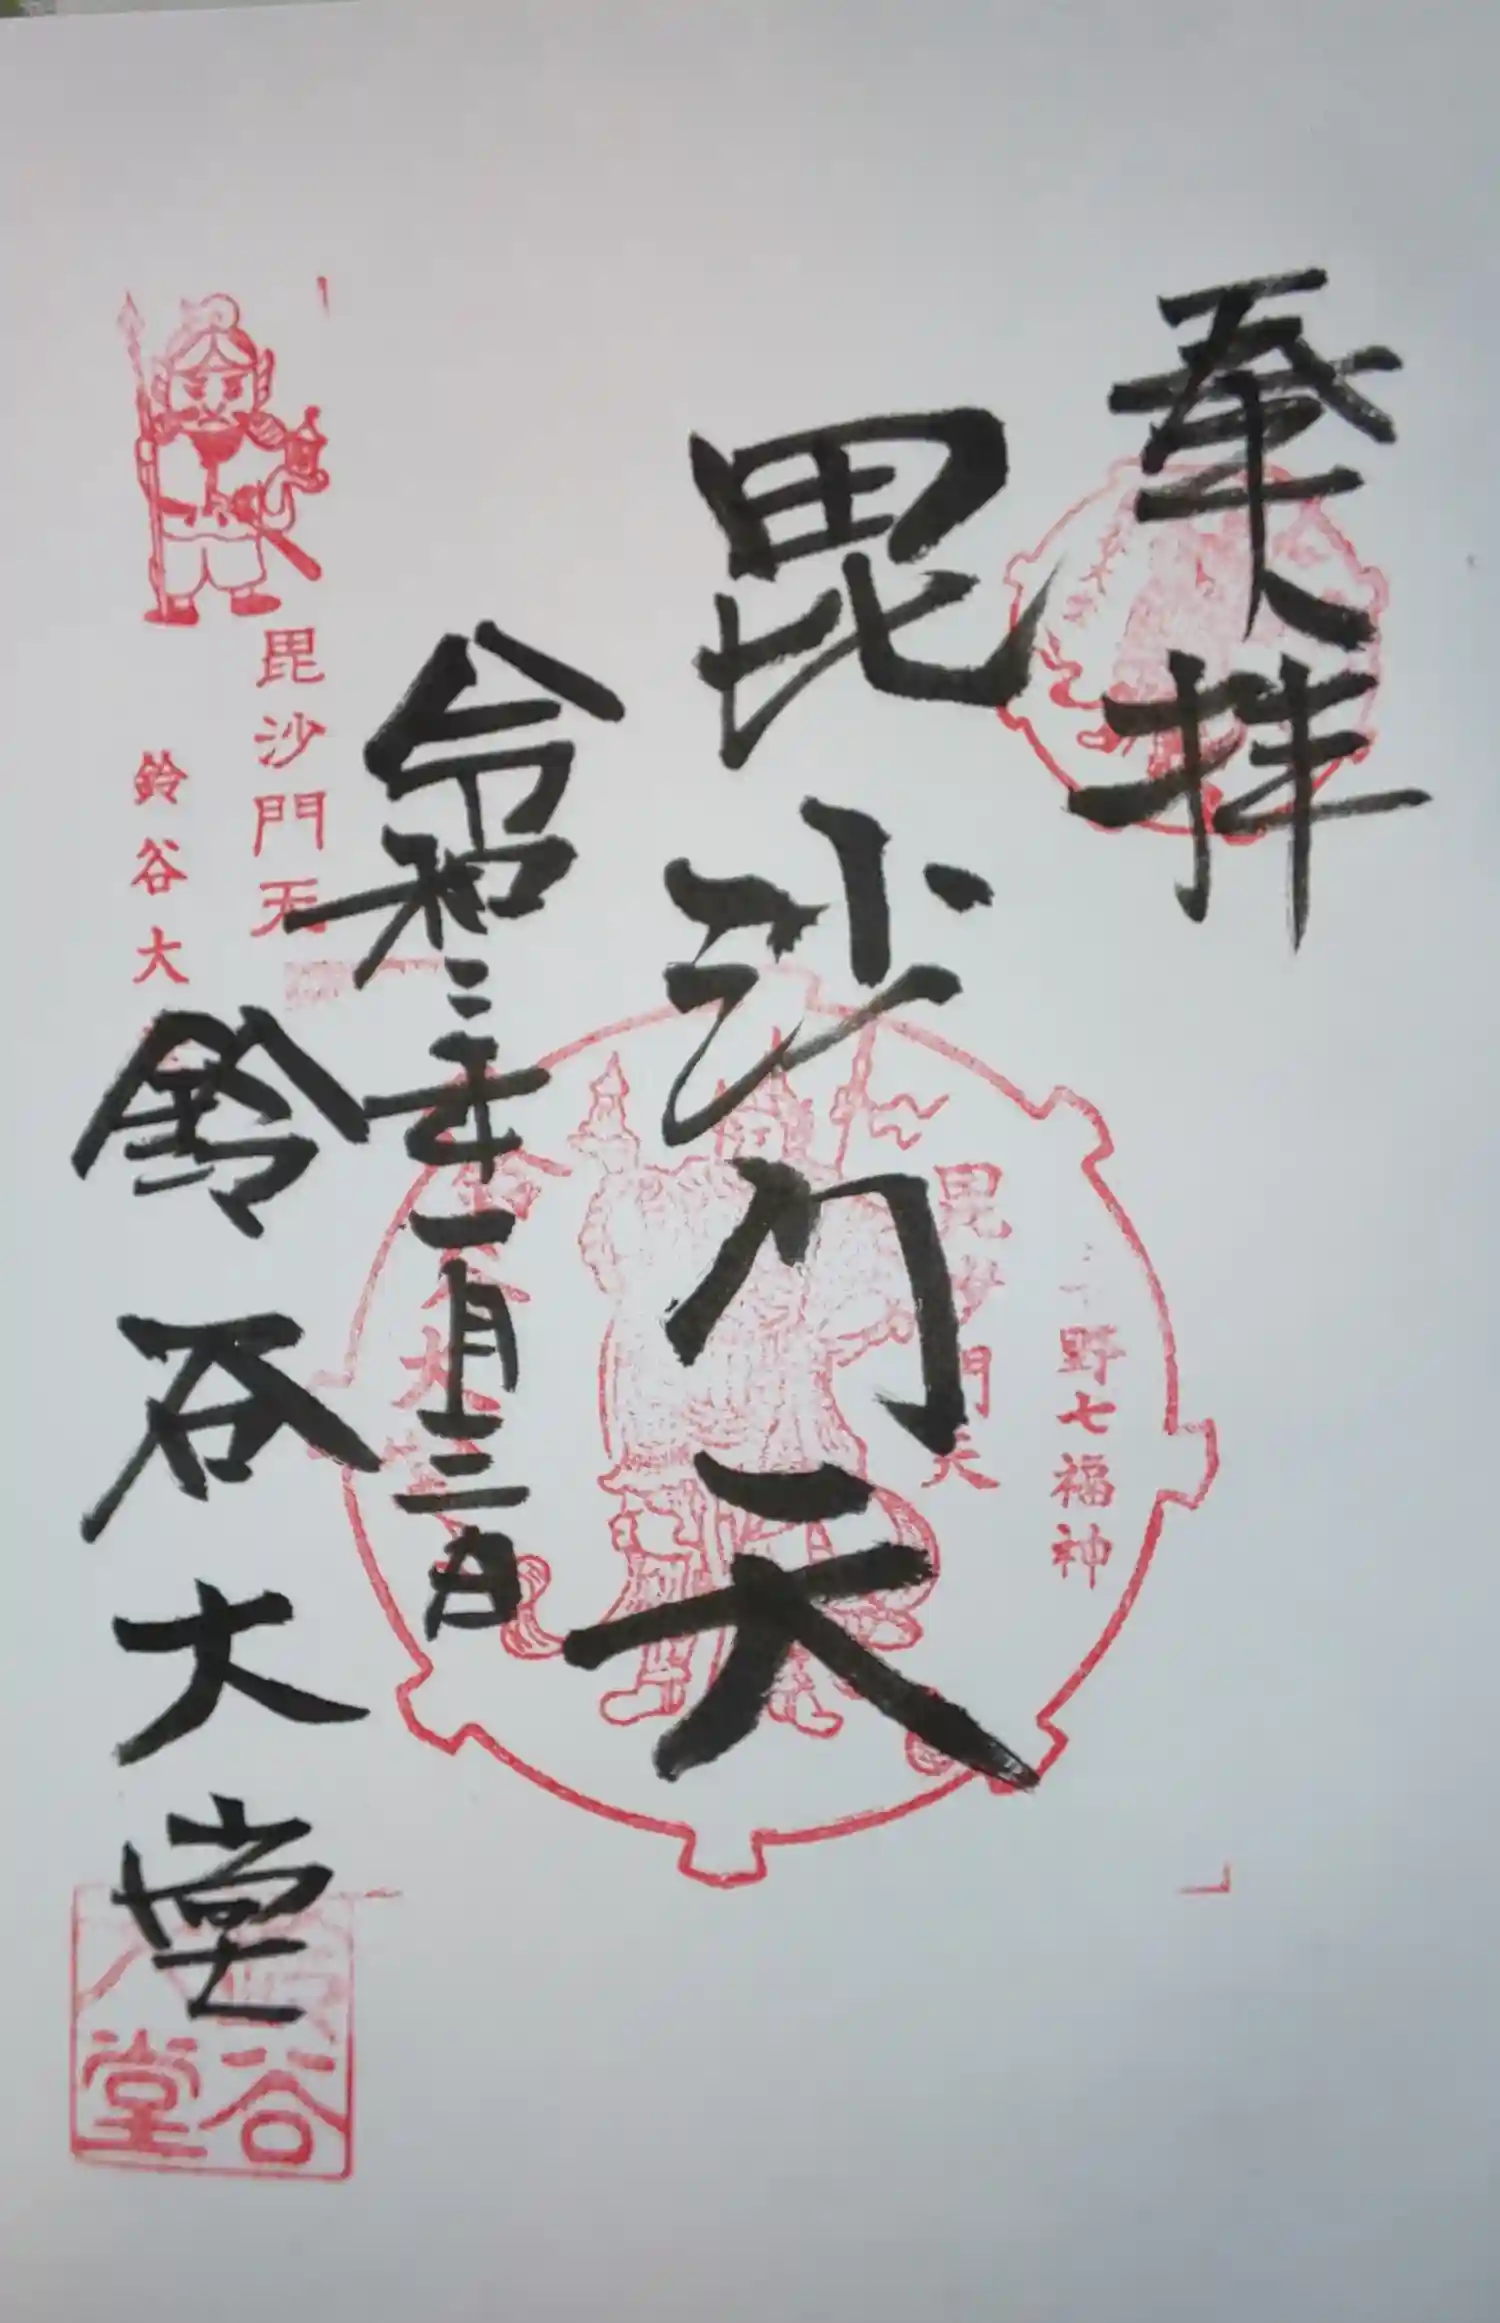 奉拝
毘沙门天
令和二年一月三日
鈴谷大堂
野七福神
毘沙門天
毘沙門天
鈴谷大
谷
堂